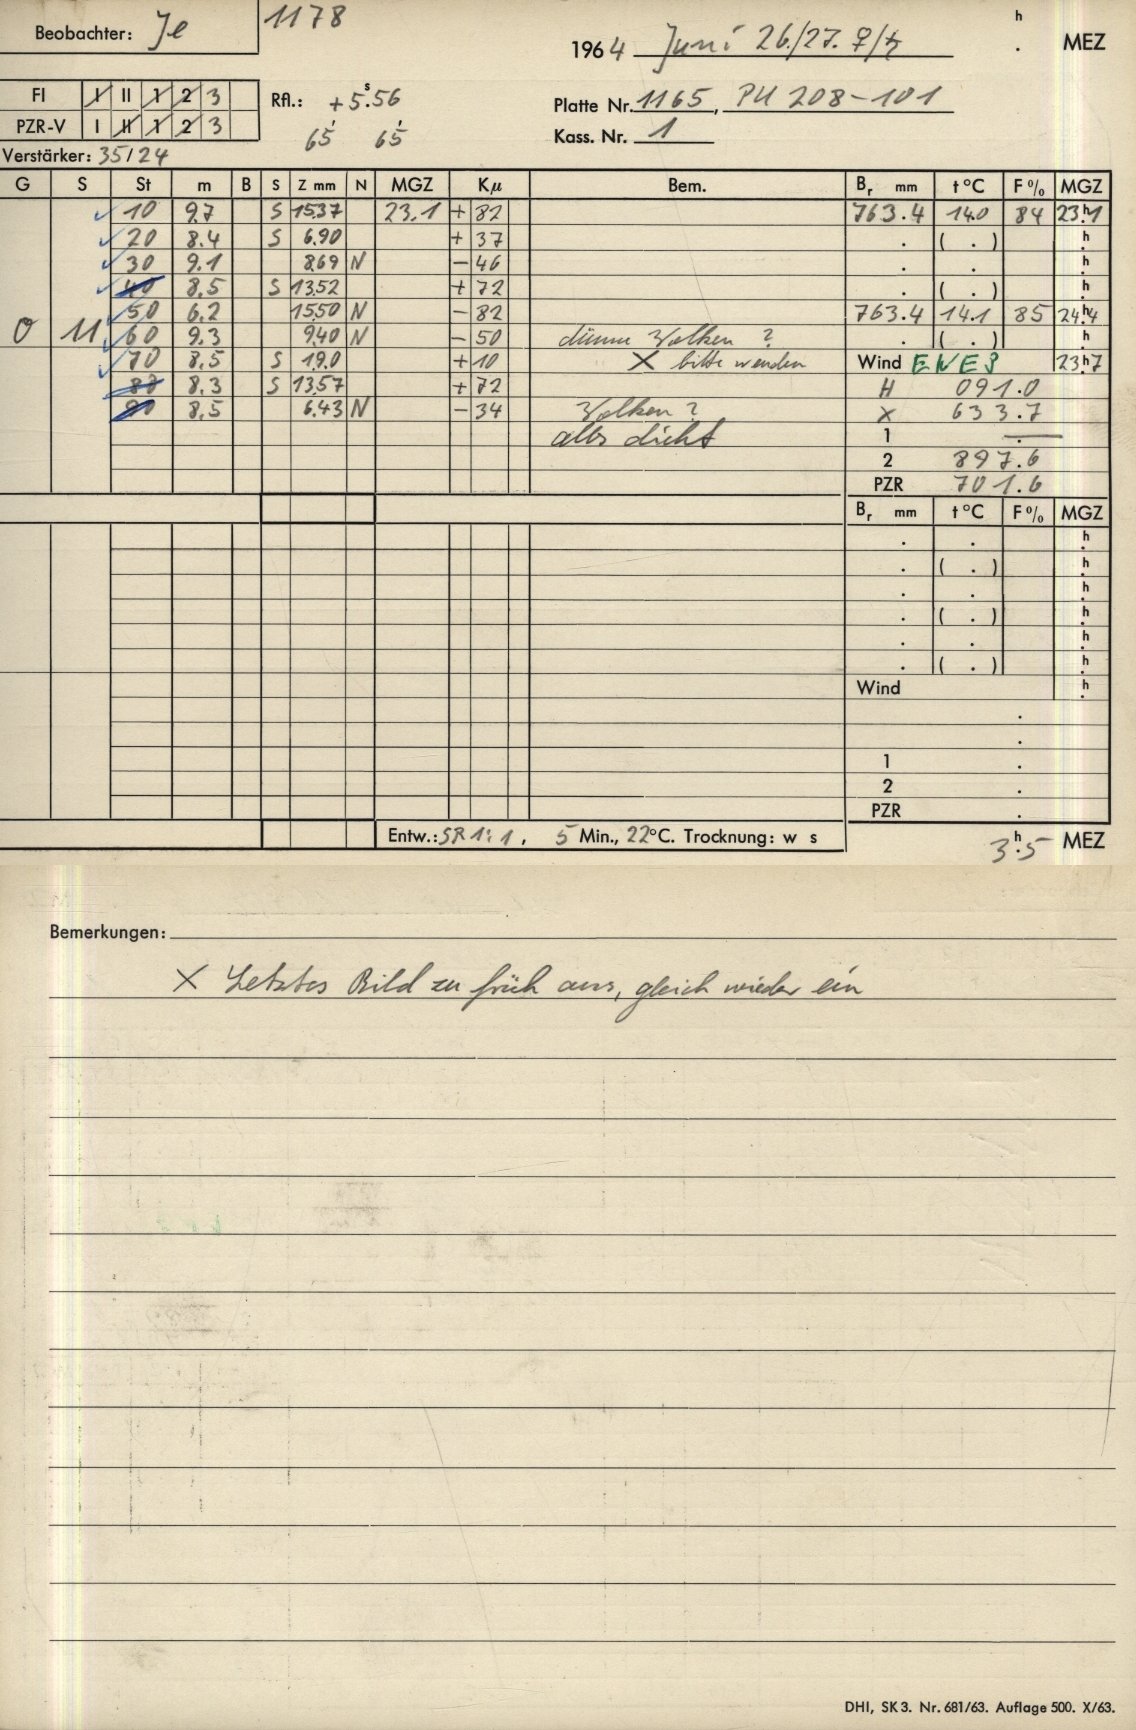 Beobachter: Je
1178
1964 Juni 26./27. ♀/♄ h . MEZ
FI I II 1 2 3
PZR-V I II 1 2 3
Rfl.: +5.s56
65 65
Platte Nr. 1165, PU 208-101
Kass. Nr. 1
Verstärker: 35/24
G S St m B S Z mm N MGZ Kµ Bem. Br mm t°C F% MGZ
10 9.7 S 15.37 23.1 + 82 763.4 14.0 84 23.h1
20 8.4 S 6.90 + 37 . ( . ) h.
30 9.1 8.69 N - 46 . . h.
40 8.5 S 13.52 + 72 . ( . ) h.
50 6.2 15.50 N - 82 763.4 14.1 85 24.h4
0 11 60 9.3 9.40 N - 50 dünne Wolken ? . ( . ) h.
70 8.5 S 19.0 + 10 X bitte wenden Wind ENE3 23.h7
80 8.3 S 13.57 + 72 H 091.0
90 8.5 6.43 N - 34 Wolken ? X 633.7
alles dicht 1 .
2 897.6
PZR 701.6
Br mm t°C F% MGZ
. . h.
. ( . ) h.
. . h.
. ( . ) h.
. . h.
. ( . ) h.
Wind h.
.
.
1 .
2 .
PZR .
Entw.: SR 1:1, 5 Min., 22°C. Trocknung: w s
3.h5 MEZ
Bemerkungen:
X Letztes Bild zu früh aus, gleich wieder ein
DHI, SK 3. Nr. 681/63. Auflage 500. X/63.